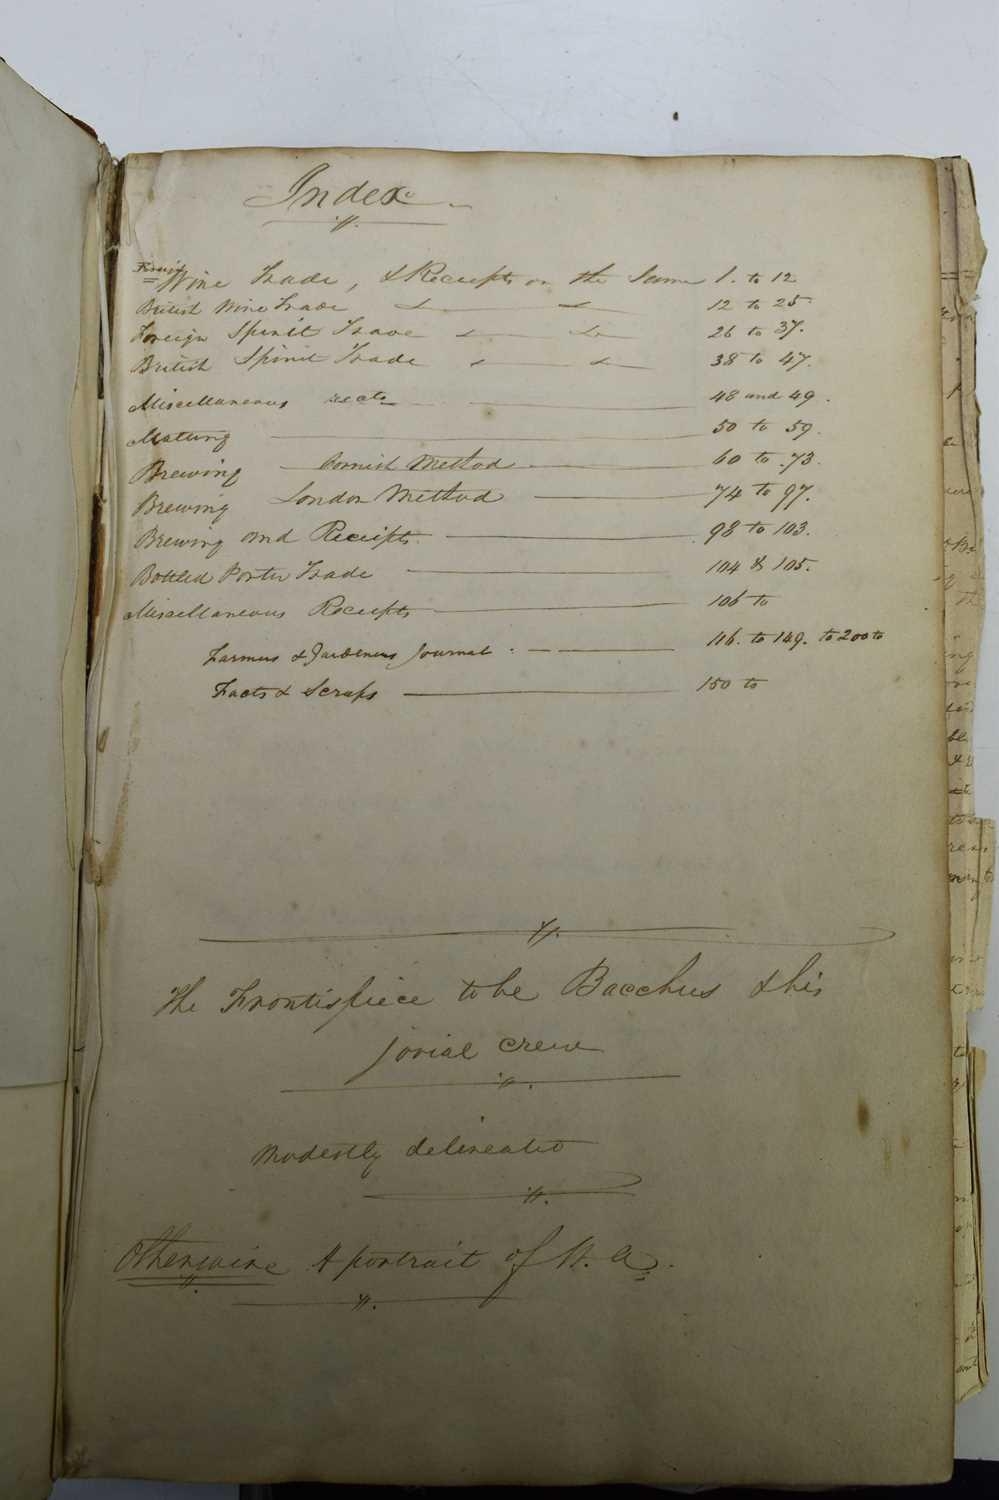 Index
Foreign
Wine Trade, & Receipts on the Same 1. to 12
British Wine Trade 12 to 25
Foreign Spirit Trade 26 to 37.
British Spirit Trade 38 to 47.
Miscellaneous 48 and 49.
Malting 50 to 59.
Brewing Cornish Method 60 to 73.
Brewing London Method 74 to 97.
Brewing and Receipts 98 to 103.
Bottled Porter Trade 104 & 105.
Miscellaneous Receipts 106 to
Farmers & Gardeners Journal. 116. to 149. to 200 to
Facts & Scraps 150 to
The Frontispiece to be Bacchus & his
jovial crew
Modestly delineated
Otherwise A portrait of